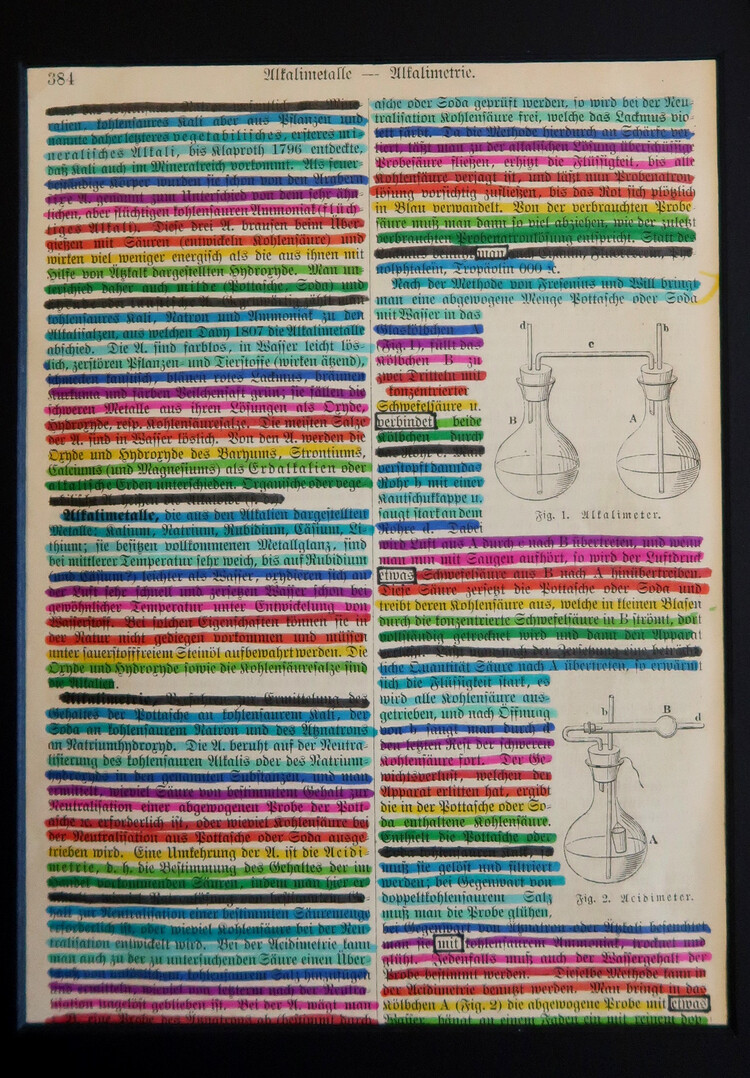 384
Alkalimetalle — Alkalimetrie.
ralien, kohlensaures Kali aber aus Pflanzen und
nannte daher letzteres vegetabilisches, ersteres mi-
neralisches Alkali, bis Klaproth 1796 entdeckte,
daß Kali auch im Mineralreich vorkommt. Als feuer-
beständige Körper wurden sie schon von den Arabern
fixe A. genannt zum Unterschied von dem sehr ähn-
lichen, aber flüchtigen kohlensauren Ammoniak (flüch-
tiges Alkali). Diese drei A. brausen beim Über-
gießen mit Säuren (entwickeln Kohlensäure) und
wirken viel weniger energisch als die aus ihnen mit
Hilfe von Ätzkalk dargestellten Hydroxyde. Man un-
terschied daher auch milde (Pottasche, Soda) und
kohlensaures Kali, Natron und Ammoniak zu den
Alkalisalzen, aus welchen Davy 1807 die Alkalimetalle
abschied. Die A. sind farblos, in Wasser leicht lös-
lich, zerstören Pflanzen- und Tierstoffe (wirken ätzend),
schmecken laugisch, bläuen rotes Lackmus, bräunen
Kurkuma und färben Veilchensaft grün; sie fällen die
schweren Metalle aus ihren Lösungen als Oxyde,
Hydroxyde, resp. Kohlensäuresalze. Die meisten Salze
der A. sind in Wasser löslich. Von den A. werden die
Oxyde und Hydroxyde des Baryums, Strontiums,
Calciums (und Magnesiums) als Erdalkalien oder
alkalische Erden unterschieden. Organische oder vege-
Alkalimetalle, die aus den Alkalien dargestellten
Metalle: Kalium, Natrium, Rubidium, Cäsium, Li-
thium; sie besitzen vollkommenen Metallglanz, sind
bei mittlerer Temperatur sehr weich, bis auf Rubidium
und Cäsium leichter als Wasser, oxydieren sich an
der Luft sehr schnell und zersetzen Wasser schon bei
gewöhnlicher Temperatur unter Entwickelung von
Wasserstoff. Bei solchen Eigenschaften können sie in
der Natur nicht gediegen vorkommen und müssen
unter sauerstofffreiem Steinöl aufbewahrt werden. Die
Oxyde und Hydroxyde sowie die Kohlensäuresalze sind
die Alkalien.
Alkalimetrie, Ermittelung des
Gehaltes der Pottasche an kohlensaurem Kali, der
Soda an kohlensaurem Natron und des Ätznatrons
an Natriumhydroxyd. Die A. beruht auf der Neutra-
lisierung des kohlensauren Alkalis oder des Natrium-
hydroxyds in den genannten Substanzen, und man
ermittelt, wieviel Säure von bestimmtem Gehalt zur
Neutralisation einer abgewogenen Probe der Pott-
asche ꝛc. erforderlich ist, oder wieviel Kohlensäure bei
der Neutralisation aus Pottasche oder Soda ausge-
trieben wird. Eine Umkehrung der A. ist die Acidi-
metrie, d. h. die Bestimmung des Gehaltes der im
Handel vorkommenden Säuren, indem man hier er-
kali zur Neutralisation einer bestimmten Säuremenge
erforderlich ist, oder wieviel Kohlensäure bei der Neu-
tralisation entwickelt wird. Bei der Acidimetrie kann
man auch zu der zu untersuchenden Säure einen Über-
Salz hinzufügen
und ermitteln, wieviel von letzterm nach der Neutra-
lisation ungelöst geblieben ist. Bei der A. wägt man
eine Probe des
asche oder Soda geprüft werden, so wird bei der Neu-
tralisation Kohlensäure frei, welche das Lackmus vio-
lett färbt. Da die Methode hierdurch an Schärfe ver-
liert, läßt man zu der alkalischen Lösung überschüssige
Probesäure fließen, erhitzt die Flüssigkeit, bis alle
Kohlensäure verjagt ist, und läßt nun Probenatron-
lösung vorsichtig zufließen, bis das Rot sich plötzlich
in Blau verwandelt. Von der verbrauchten Probe-
säure muß man dann so viel abziehen, wie der zuletzt
verbrauchten Probenatronlösung entspricht. Statt des
man
nolphtalein, Tropäolin 000 ꝛc.
Nach der Methode von Fresenius und Will bringt
man eine abgewogene Menge Pottasche oder Soda
mit Wasser in das
Glaskölbchen A
(Fig. 1), füllt das
Kölbchen B zu
zwei Dritteln mit
konzentrierter
Schwefelsäure u.
verbindet beide
Kölbchen durch
Rohr c. Man
verstopft dann das
Rohr b mit einer
Kautschukkappe u.
saugt stark an dem
Rohre d. Dabei
d
c
b
B
A
Fig. 1. Alkalimeter.
wird Luft aus A durch c nach B übertreten, und wenn
man mit Saugen aufhört, so wird der Luftdruck
etwas Schwefelsäure aus B nach A hinübertreiben.
Diese Säure zersetzt die Pottasche oder Soda und
treibt deren Kohlensäure aus, welche in kleinen Blasen
durch die konzentrierte Schwefelsäure in B strömt, dort
vollständig getrocknet wird und dann den Apparat
liche Quantität Säure nach A übertreten, so erwärmt
sich die Flüssigkeit stark, es
wird alle Kohlensäure aus-
getrieben, und nach Öffnung
von b saugt man durch d
den letzten Rest der schweren
Kohlensäure fort. Der Ge-
wichtsverlust, welchen der
Apparat erlitten hat, ergibt
die in der Pottasche oder So-
da enthaltene Kohlensäure.
Enthielt die Pottasche oder
muß sie gelöst und filtriert
werden; bei Gegenwart von
doppeltkohlensaurem Salz
muß man die Probe glühen,
b
B
d
A
Fig. 2. Acidimeter.
bei Gegenwart von Ätznatron oder Ätzkali befeuchtet
man sie mit kohlensaurem Ammoniak, trocknet und
glüht. Jedenfalls muß auch der Wassergehalt der
Probe bestimmt werden. Dieselbe Methode kann in
der Acidimetrie benutzt werden. Man bringt in das
Kölbchen A (Fig. 2) die abgewogene Probe mit etwas
Wasser, hängt an einem Faden ein mit reinem dop-